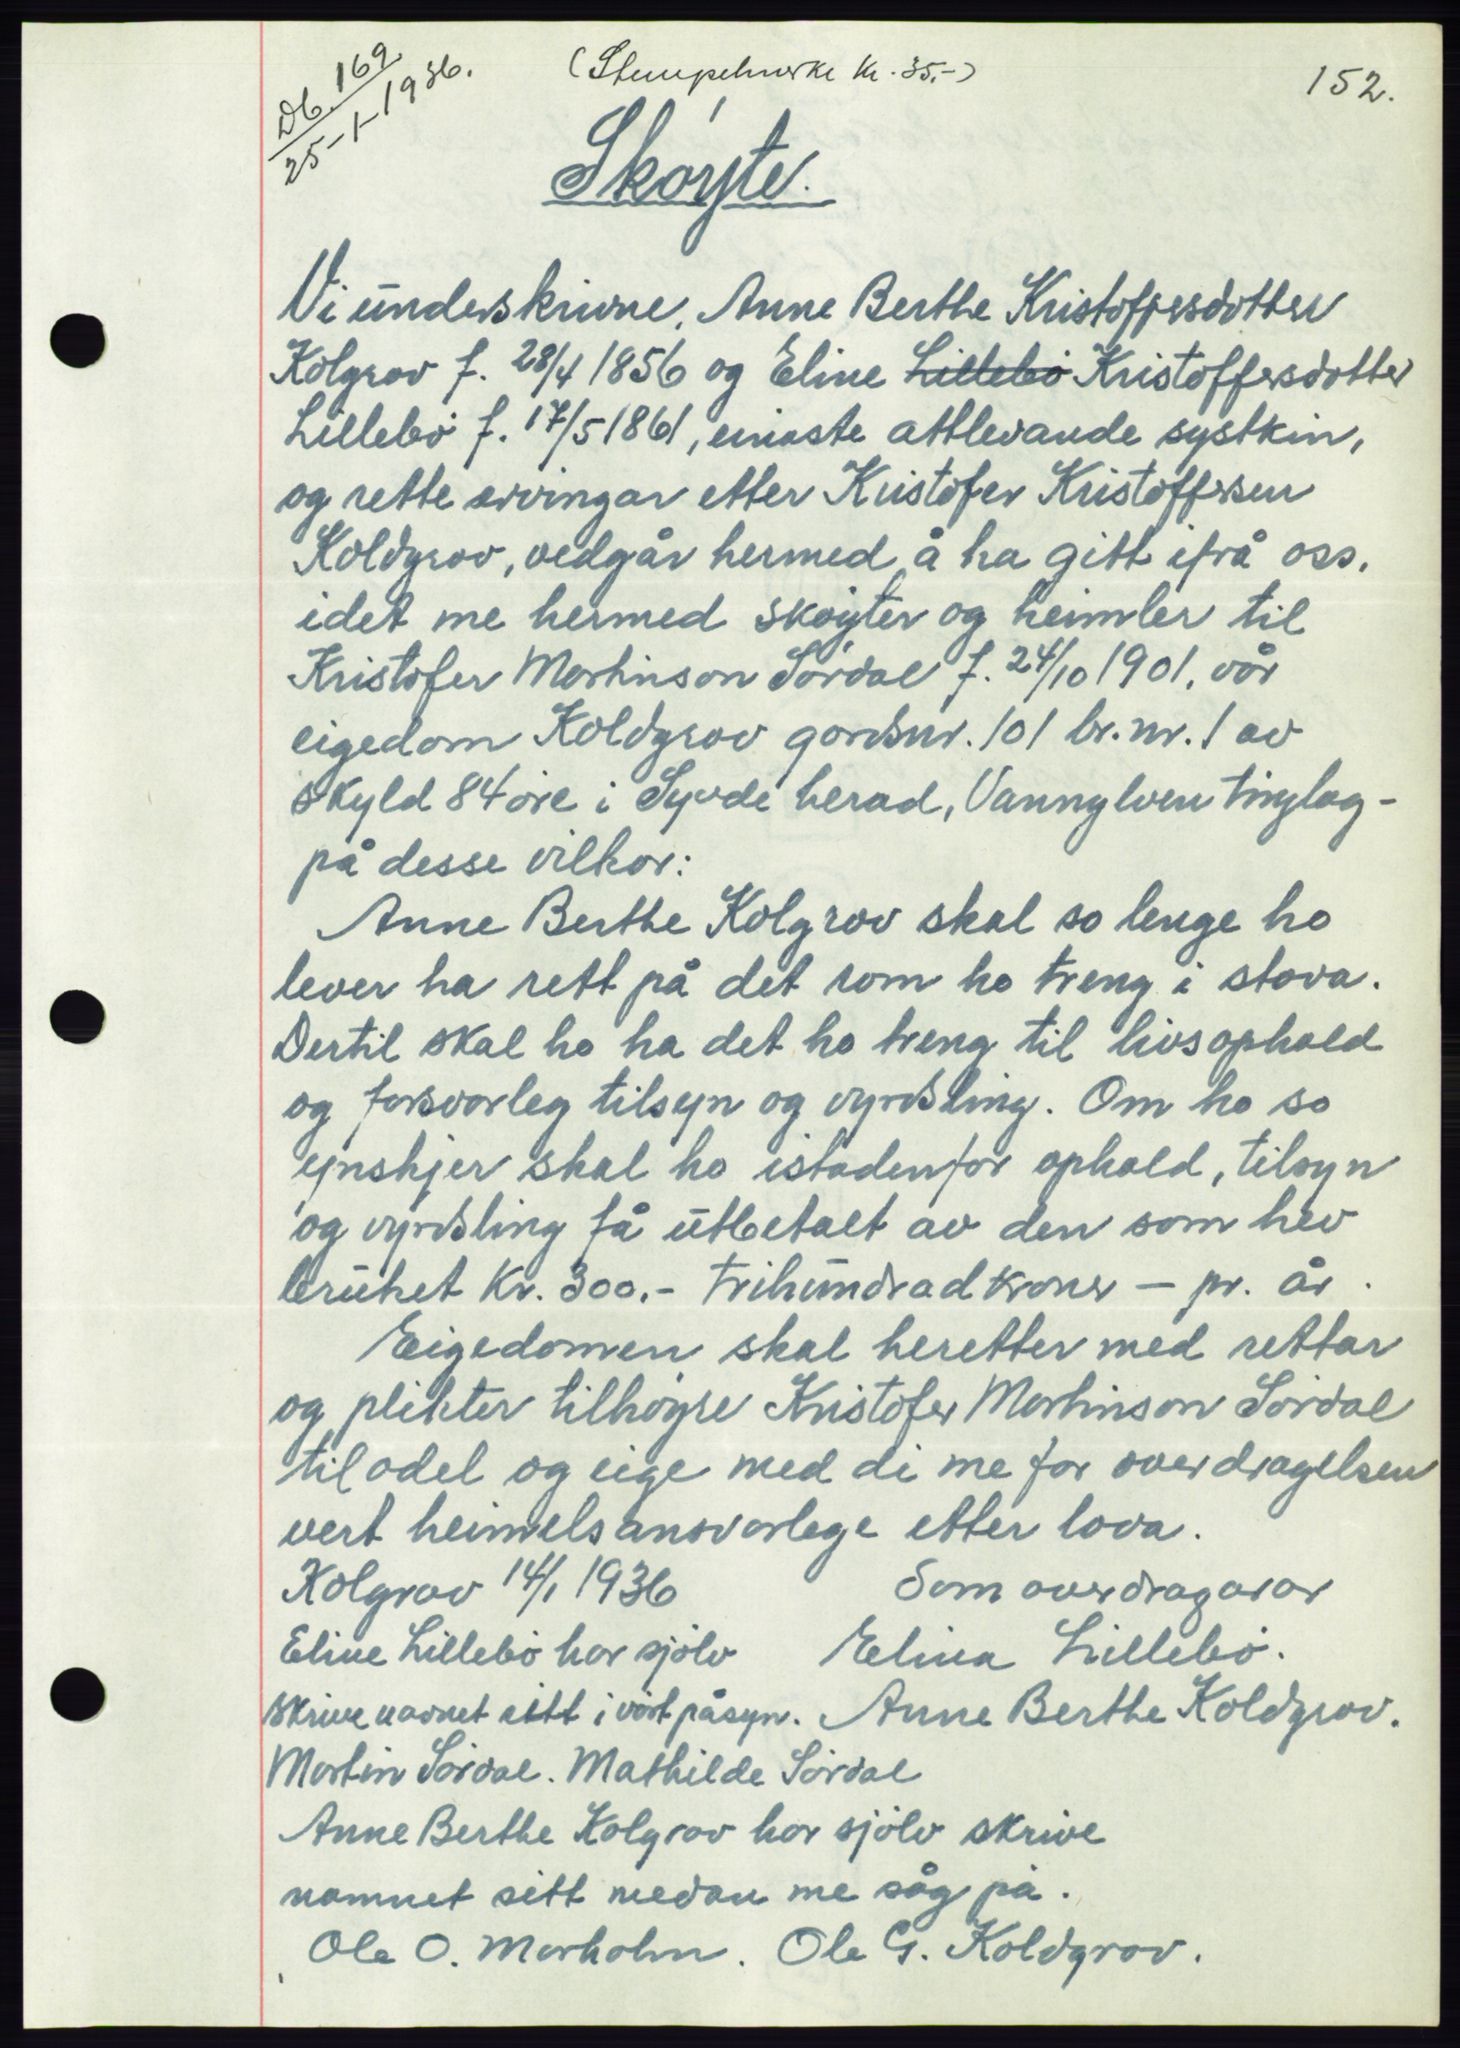 Db. 169
25-1-1936.
(Stempelmerke kr. 35.-)
152.
Skøyte.
Vi underskrivne, Anne Berthe Kristoffersdotter
Kolgrov f. 28/4 1856 og Eline Lillebø Kristoffersdotter
Lillebø f. 17/5 1861, einaste attlevande systkin,
og rette ervingar etter Kristofer Kristoffersen
Koldgrov, vedgår hermed å ha gitt ifrå oss,
idet me hermed skøyter og heimler til
Kristofer Martinson Sørdal f. 24/10 1901, vår
eigedom Koldgrov gardsnr. 101 br. nr. 1 av
skyld 84 øre i Syvde herad, Vannylven tinglag -
på desse vilkor:
Anne Berthe Kolgrov skal so lenge ho
lever ha rett på det rom ho treng i stova.
Dertil skal ho ha det ho treng til livsophald
og forsvarleg tilsyn og vyrdsling. Om ho so
ynskjer skal ho istadenfor ophald, tilsyn
og vyrdsling få utbetalt av den som hev
bruket kr. 300.- trihundrad kroner - pr. år.
Eigedomen skal heretter med rettar
og plikter tilhøyre Kristofer Martinson Sørdal
til odel og eige med di me for overdragelsen
vert heimelsansvarlege etter lova.
Kolgrov 14/1 1936 Som overdragarar
Eline Lillebø har sjølv Elina Lillebø.
skrive navnet sitt i vårt påsyn. Anne Berthe Koldgrov.
Martin Sørdal. Mathilde Sørdal
Anne Berthe Kolgrov har sjølv skrive
namnet sitt medan me såg på.
Ole O. Morholm. Ole G. Koldgrov.